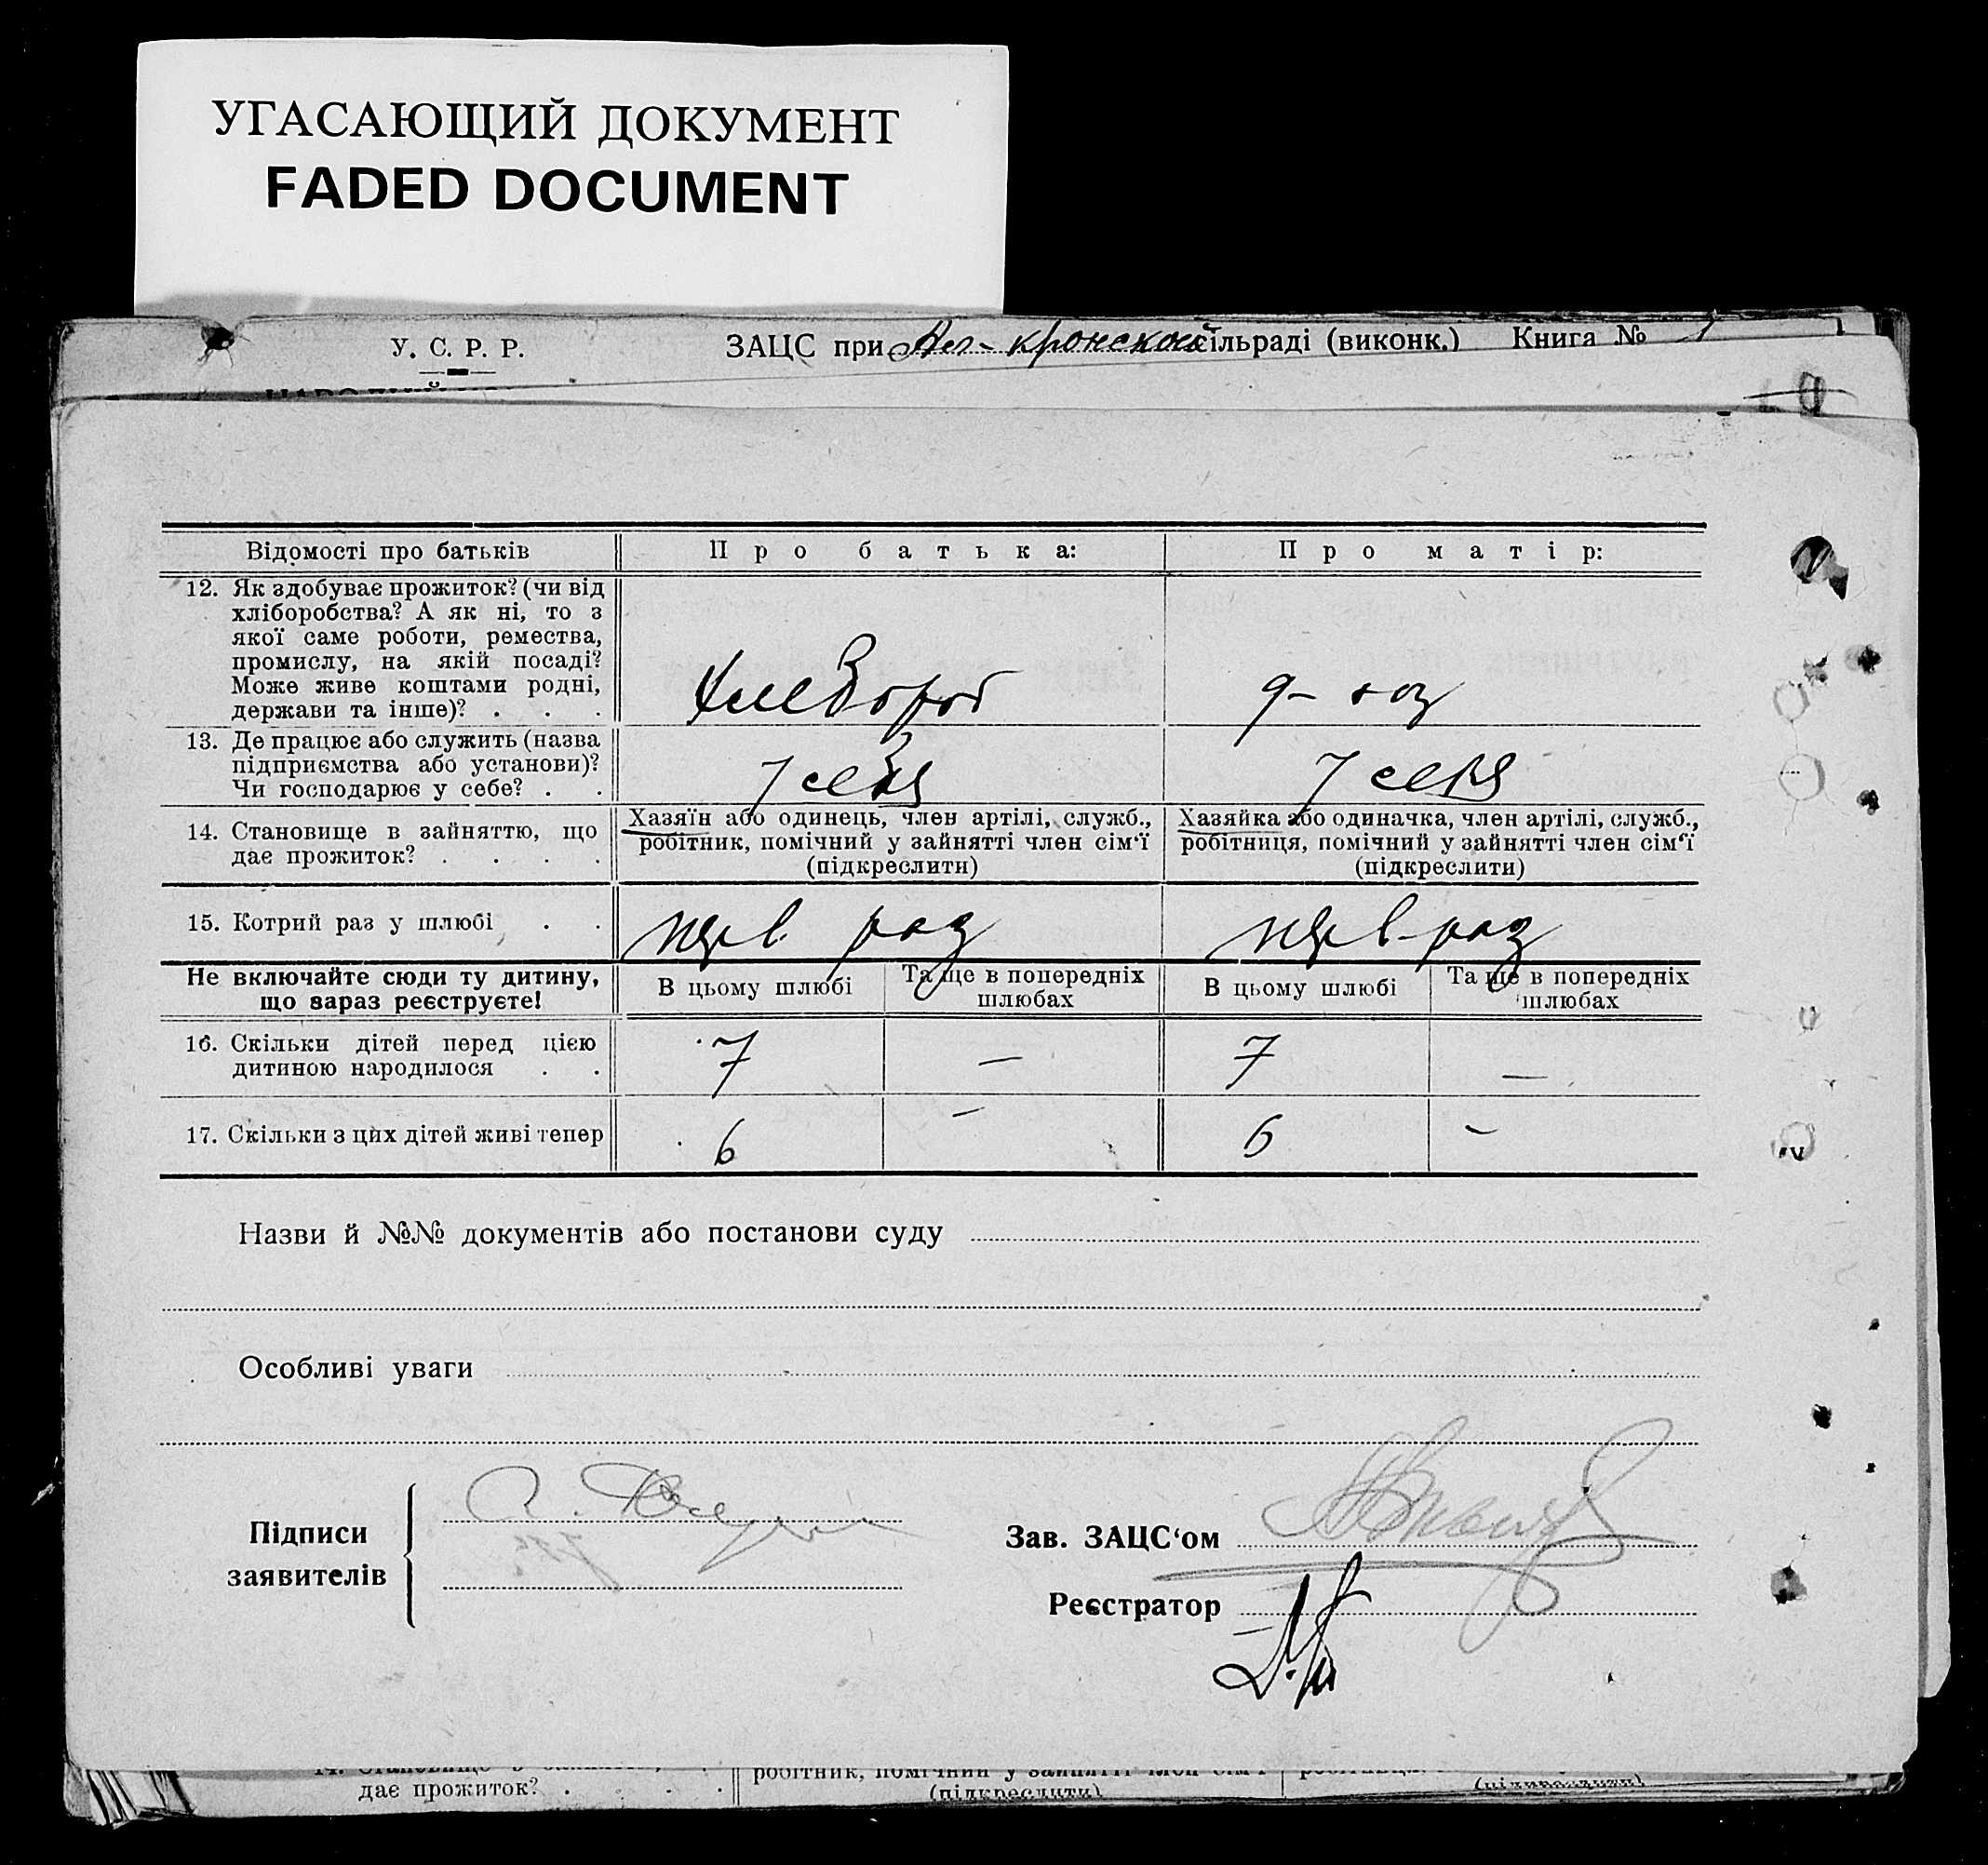 УГАСАЮЩИЙ ДОКУМЕНТ
FADED DOCUMENT
У. С. Р. Р.
ЗАЦС при сільраді (виконк.) Книга №
Відомості про батьків
Про батька:
Про матір:
12. Як здобуває прожиток? (чи від
хліборобства? А як ні, то з
якої саме роботи, ремества,
промислу, на якій посаді?
Може живе коштами родні,
держави та інше)? . . .
Хлебороб
д- хоз
13. Де працює або служить (назва
підприємства або установи)?
Чи господарює у себе? . .
У себя
У себя
14. Становище в зайняттю, що
дає прожиток? . . . .
Хазяїн або одинець, член артілі, служб.,
робітник, помічний у зайнятті член сім‘ї
(підкреслити)
Хазяйка або одиначка, член артілі, служб.,
робітниця, помічний у зайнятті член сім‘ї
(підкреслити)
15. Котрий раз у шлюбі . .
перв. раз
перв-раз
Не включайте сюди ту дитину,
що зараз реєструєте!
В цьому шлюбі
Та ще в попередніх
шлюбах
В цьому шлюбі
Та ще в попередніх
шлюбах
16. Скільки дітей перед цією
дитиною народилося . .
7
—
7
—
17. Скільки з цих дітей живі тепер
6
—
6
—
Назви й №№ документів або постанови суду
Особливі уваги
Підписи
заявителів
Зав. ЗАЦС‘ом
Реєстратор
дає прожиток? . . . .
робітник, помічний у зайнятті член сім‘ї
(підкреслити)
(підкреслити)